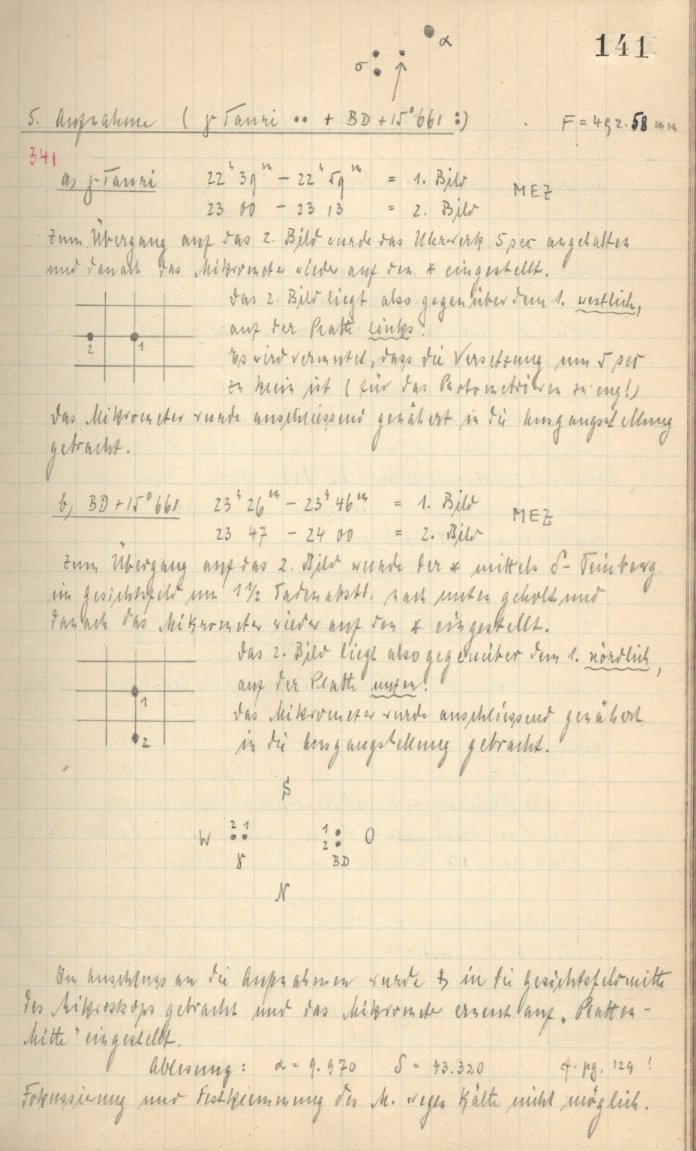 α
141
σ
5. Aufnahme ( γ Tauri •• + BD+15° 661 :) F = 492.58 mm
341
a) γ Tauri 22ʰ 39ᵐ – 22ʰ 59ᵐ = 1. Bild MEZ
23 00 – 23 13 = 2. Bild
Zum Übergang auf das 2. Bild wurde das Uhrwerk 5 sec angehalten
und danach das Mikrometer wieder auf den * eingestellt.
Das 2. Bild liegt also gegenüber dem 1. westlich,
auf der Platte links.
2 1
Es wird vermutet, dass die Versetzung um 5 sec
zu klein ist (für das Photometrieren zu eng!)
Das Mikrometer wurde anschliessend genähert in die Ausgangsstellung
gebracht.
b) BD+15° 661 23ʰ 26ᵐ – 23ʰ 46ᵐ = 1. Bild MEZ
23 47 – 24 00 = 2. Bild
Zum Übergang auf das 2. Bild wurde der * mittels δ-Feinbewg.
im Gesichtsfeld um 1½ Fadenabstd. nach unten geholt und
danach das Mikrometer wieder auf den * eingestellt.
Das 2. Bild liegt also gegenüber dem 1. nördlich,
auf der Platte unten.
1
Das Mikrometer wurde anschliessend genähert
2
in die Ausgangsstellung gebracht.
S
W 2 1 1 2 O
γ BD
N
Im Anschluss an die Aufnahmen wurde ♄ in die Gesichtsfeldmitte
des Mikroskops gebracht und das Mikrometer erneut auf „Platten-
Mitte" eingestellt.
Ablesung: α = 9.970 δ = 43.320 cf. pg. 129 !
Fokussierung und Festklemmung des M. wegen Kälte nicht möglich.